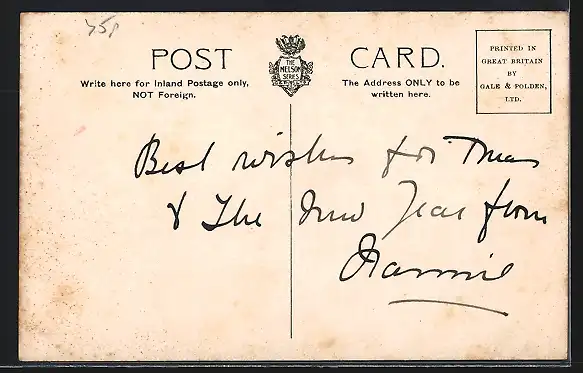 75p
POST CARD.
THE
NELSON
SERIES
Write here for Inland Postage only,
NOT Foreign.
The Address ONLY to be
written here.
PRINTED IN
GREAT BRITAIN
BY
GALE & POLDEN,
LTD.
Best wishes for Xmas
& The New Year from